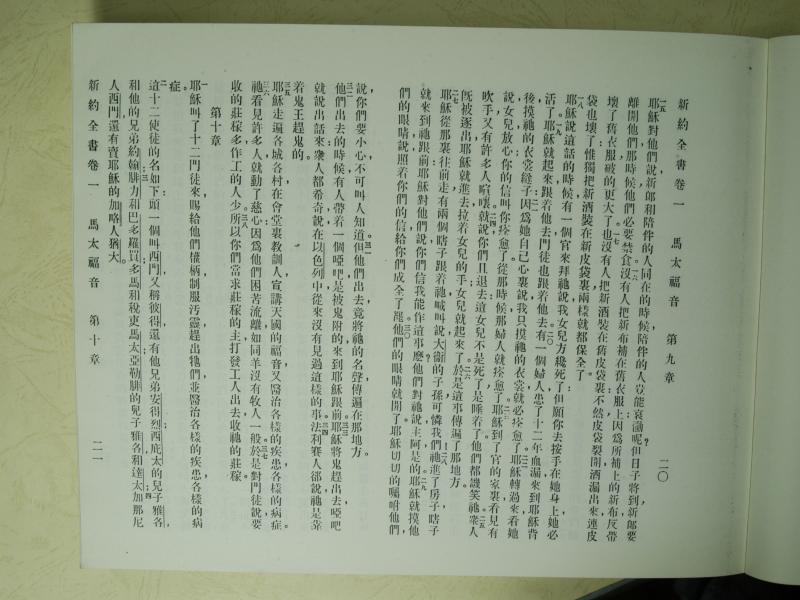 新約全書卷一 馬太福音 第九章 二〇
一五耶穌對他們說、新郎和陪伴的人同在的時候、陪伴的人豈能哀慟呢？但日子將到、新郎要
離開他們、那時候他們必要禁食。一六沒有人把新布補在舊衣服上、因爲所補上的新布、反帶
壞了舊衣服、破的更大了。一七也沒有人把新酒裝在舊皮袋裏、不然、皮袋裂開、酒漏出來、連皮
袋也壞了、惟獨把新酒裝在新皮袋裏、兩樣就都保全了。
一八耶穌說這話的時候、有一個官來拜祂說、我女兒方纔死了、但願你去按手在她身上、她必
活了。一九耶穌就起來跟着他去、門徒也跟着他去。二〇有一個婦人、患了十二年血漏、來到耶穌背
後、摸祂的衣裳繸子。二一因爲她自己心裏說、我只摸祂的衣裳、就必痊愈了。二二耶穌轉過來看她
說、女兒放心、你的信叫你痊愈了、從那時候、那婦人就痊愈了。二三耶穌到了官的家裏、看見有
吹手、又有許多人喧嚷。二四就說、你們且退去、這女兒不是死了、是睡着了、他們都譏笑祂。二五衆人
旣被逐出、耶穌就進去、拉着女兒的手、女兒就起來了。二六於是這事傳遍了那地方。
二七耶穌從那裏往前走、有兩個瞎子跟着祂喊叫說、大衞的子孫、可憐我們。二八祂進了房子、瞎子
就來到祂跟前、耶穌對他們說、你們信我能作這事麼？他們對祂說、主阿、是的。二九耶穌就摸他
們的眼睛說、照着你們的信給你們成全了罷。三〇他們的眼睛就開了、耶穌切切的囑咐他們
說、你們要小心、不可叫人知道。三一但他們出去、竟將祂的名聲傳遍在那地方。
三二他們出去的時候、有人帶着一個啞吧、是被鬼附的、來到耶穌跟前。三三耶穌將鬼趕出去、啞吧
就說出話來、衆人都希奇說、在以色列中、從來沒有見過這樣的事。三四法利賽人卻說、祂是靠
着鬼王趕鬼的。
三五耶穌走遍各城各村、在會堂裏教訓人、宣講天國的福音、又醫治各樣的疾患、各樣的病症。
三六祂看見許多人、就動了慈心、因爲他們困苦流離、如同羊沒有牧人一般。三七於是對門徒說、要
收的莊稼多、作工的人少。三八所以你們當求莊稼的主、打發工人出去收祂的莊稼。
第十章
一耶穌叫了十二門徒來、賜給他們權柄、制服汚靈、趕出牠們、並醫治各樣的疾患、各樣的病
症。
二這十二使徒的名如下、頭一個叫西門、又稱彼得、還有他兄弟安得烈、西庇太的兒子雅各、
和他的兄弟約翰。三腓力、和巴多羅買、多馬、和稅吏馬太、亞勒腓的兒子雅各、和達太。四加那尼
人西門、還有賣耶穌的加略人猶大。
新約全書卷一 馬太福音 第十章 二一